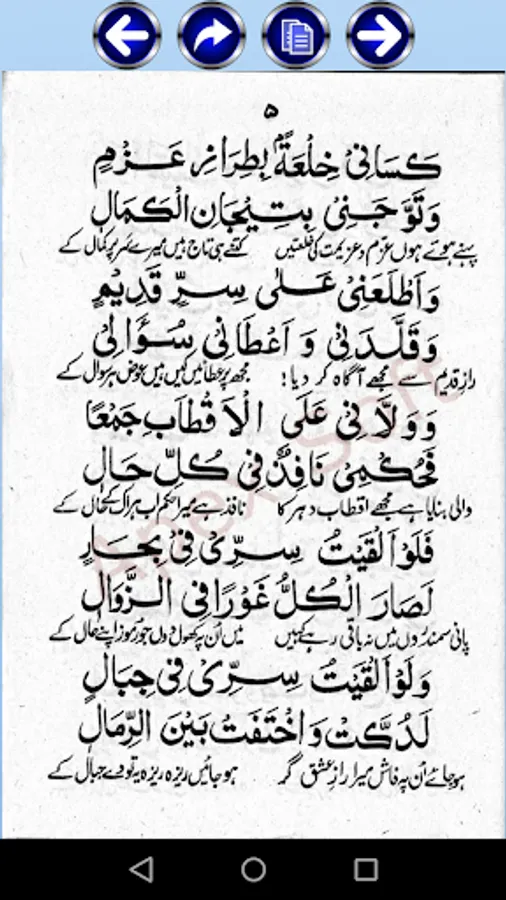 ۵
كَسَانِیْ خِلْعَةًۢ بِطِرَازِ عَزْمٍ
وَتَوَّجَنِیْ بِتِيْجَانِ الْكَمَالِ
پہنے ہوئے ہوں عزم و عزیمت کی خلعتیں کتنے ہی تاج ہیں میرے سر پر کمال کے
وَاَطْلَعَنِیْ عَلٰی سِرٍّ قَدِيْمٍ
وَقَلَّدَنِیْ وَ اَعْطَانِیْ سُؤَالِیْ
رازِ قدیم سے مجھے آگاہ کر دیا! مجھ پر عطائیں کیں ہیں عوض ہر سوال کے
وَ وَلَّانِیْ عَلَی الْاَقْطَابِ جَمْعًا
فَحُكْمِیْ نَافِذٌ فِیْ كُلِّ حَالٍ
والی بنایا ہے مجھے اقطابِ دہر کا نافذ ہے میرا حکم اب ہر اک کے حال کے
فَلَوْ اَلْقَيْتُ سِرِّیْ فِیْ بِحَارٍ
لَصَارَ الْكُلُّ غَوْرًا فِی الزَّوَالِ
پانی سمندروں میں نہ باقی رہے کہیں میں اُن پہ کھول دوں جو رموز اپنے حال کے
وَلَوْ اَلْقَيْتُ سِرِّیْ فِیْ جِبَالٍ
لَدُكَّتْ وَاخْتَفَتْ بَيْنَ الرِّمَالِ
ہو جائے اُن پہ فاش میرا رازِ عشق گر ہو جائیں ریزہ ریزہ یہ تودے جبال کے